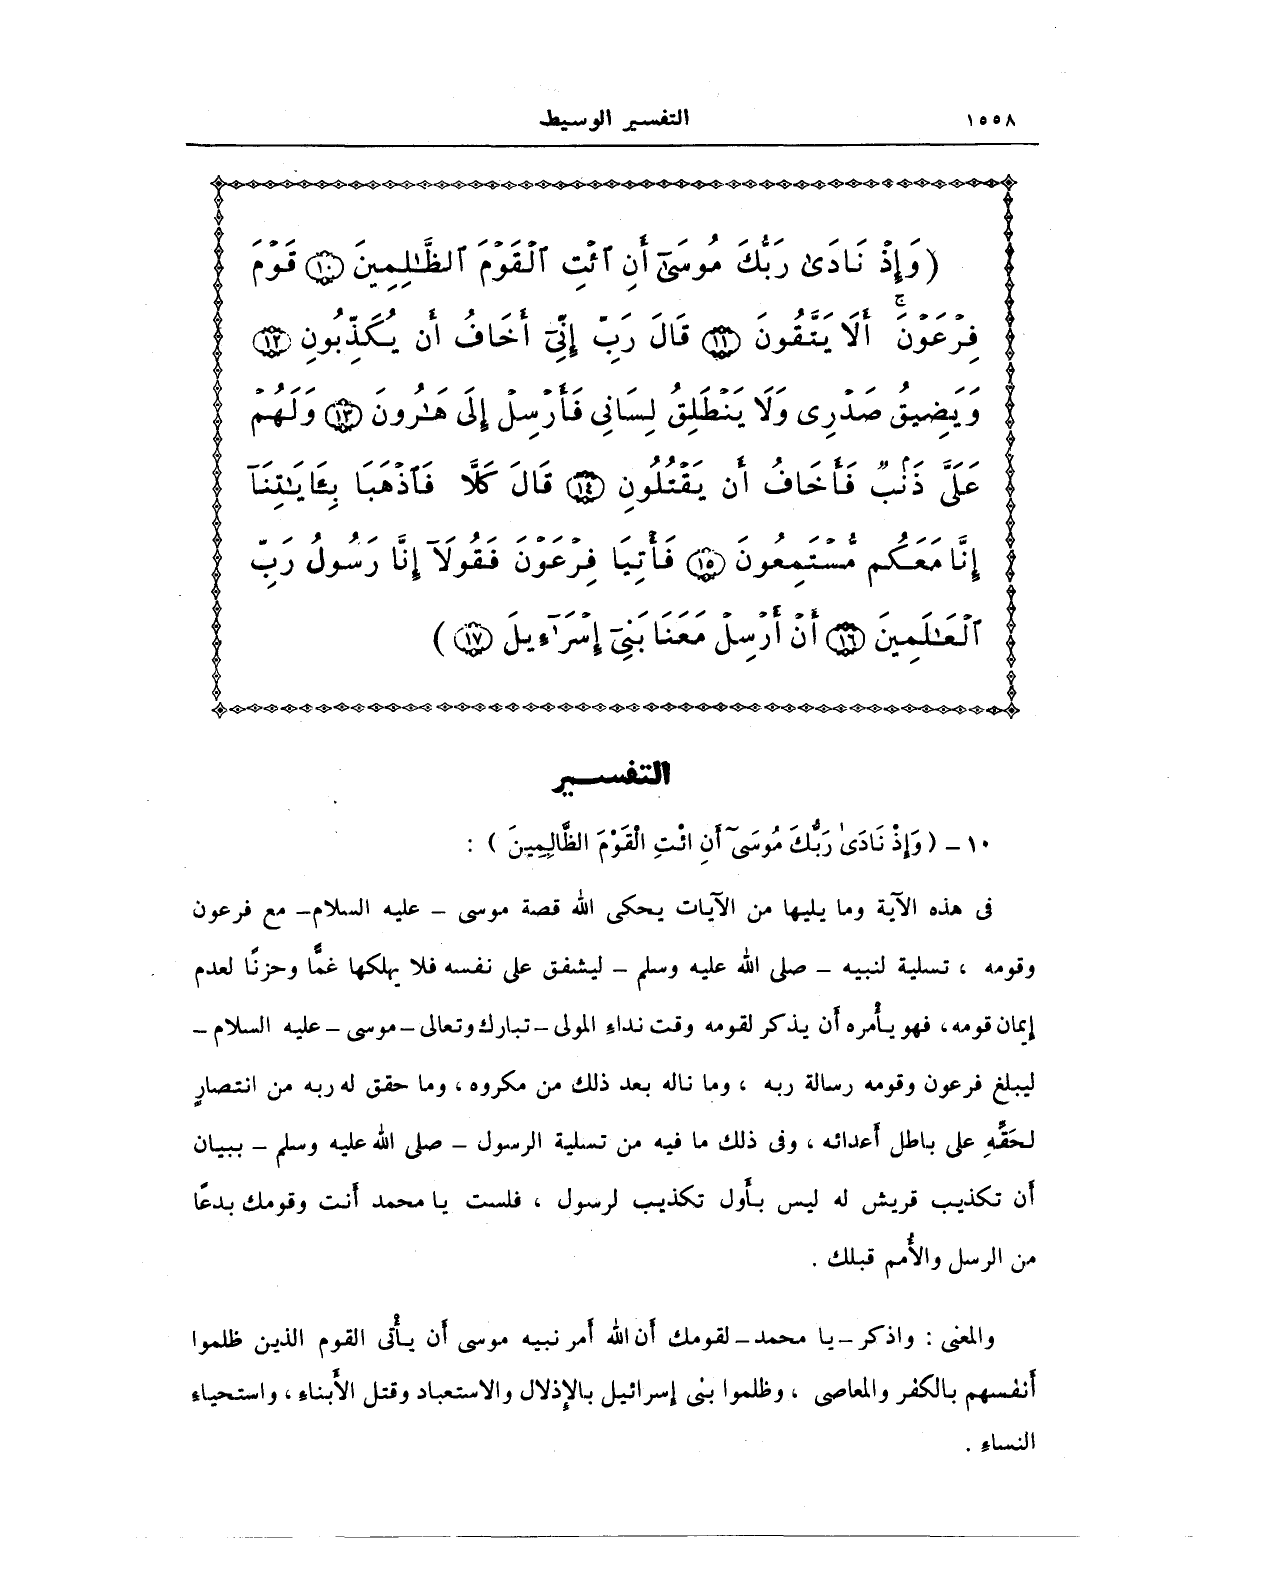 ١٥٥٨
التفسير الوسيط
(وَإِذْ نَادَىٰ رَبُّكَ مُوسَىٰٓ أَنِ ٱئْتِ ٱلْقَوْمَ ٱلظَّٰلِمِينَ ١٠ قَوْمَ
فِرْعَوْنَ ۚ أَلَا يَتَّقُونَ ١١ قَالَ رَبِّ إِنِّىٓ أَخَافُ أَن يُكَذِّبُونِ ١٢
وَيَضِيقُ صَدْرِى وَلَا يَنطَلِقُ لِسَانِى فَأَرْسِلْ إِلَىٰ هَٰرُونَ ١٣ وَلَهُمْ
عَلَىَّ ذَنۢبٌ فَأَخَافُ أَن يَقْتُلُونِ ١٤ قَالَ كَلَّا فَٱذْهَبَا بِـَٔايَٰتِنَآ
إِنَّا مَعَكُم مُّسْتَمِعُونَ ١٥ فَأْتِيَا فِرْعَوْنَ فَقُولَآ إِنَّا رَسُولُ رَبِّ
ٱلْعَٰلَمِينَ ١٦ أَنْ أَرْسِلْ مَعَنَا بَنِىٓ إِسْرَٰٓءِيلَ ١٧)
التفسير
١٠ – (وَإِذْ نَادَىٰ رَبُّكَ مُوسَىٰٓ أَنِ ائْتِ الْقَوْمَ الظَّالِمِينَ) :
فى هذه الآية وما يليها من الآيات يحكى الله قصة موسى – عليه السلام– مع فرعون
وقومه ، تسلية لنبيه – صلى الله عليه وسلم – ليشفق على نفسه فلا يهلكها غمًّا وحزنًا لعدم
إيمان قومه، فهو يأْمره أَن يذكر لقومه وقت نداءِ المولى –تبارك وتعالى–موسى – عليه السلام –
ليبلغ فرعون وقومه رسالة ربه ، وما ناله بعد ذلك من مكروه ، وما حقق له ربه من انتصارٍ
لحَقِّهِ على باطل أَعدائه ، وفى ذلك ما فيه من تسلية الرسول – صلى الله عليه وسلم – ببيان
أَن تكذيب قريش له ليس بأَول تكذيب لرسول ، فلست يا محمد أَنت وقومك بدعًا
من الرسل والأُمم قبلك .
والمعنى : واذكر –يا محمد– لقومك أَن الله أَمر نبيه موسى أَن يأْتى القوم الذين ظلموا
أَنفسهم بالكفر والمعاصى ، وظلموا بنى إسرائيل بالإِذلال والاستعباد وقتل الأَبناء ، واستحياء
النساءِ .